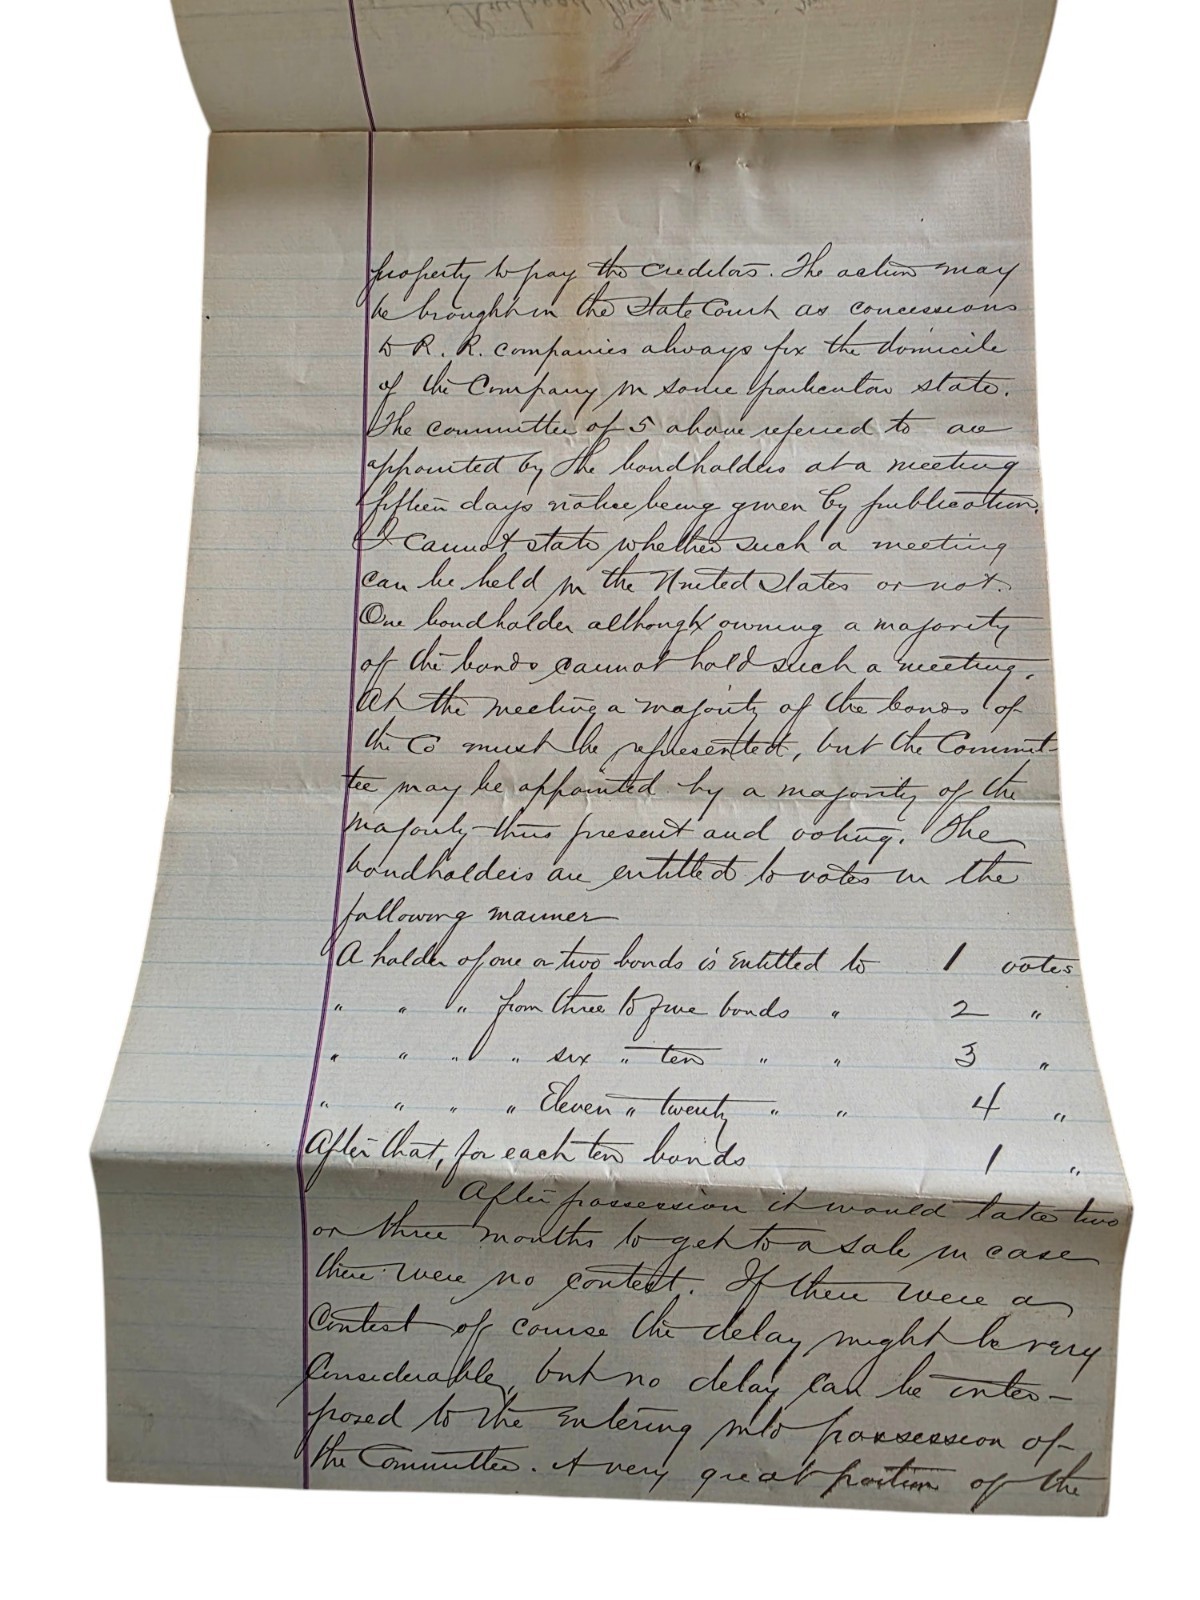 property to pay the creditors. The action may
be brought in the State Court as concessions
to R. R. companies always fix the domicile
of the Company in some particular state.
The committee of 5 above referred to are
appointed by the bondholders at a meeting
fifteen days notice being given by publication.
I cannot state whether such a meeting
can be held in the United States or not.
One bondholder although owning a majority
of the bonds cannot hold such a meeting.
At the meeting a majority of the bonds of
the Co must be represented, but the Commit-
tee may be appointed by a majority of the
majority thus present and voting. The
bondholders are entitled to votes in the
following manner
A holder of one or two bonds is entitled to 1 votes
" " " from three to five bonds " 2 "
" " " " six " ten " " 3 "
" " " " Eleven " twenty " " 4 "
After that, for each ten bonds 1 "
After possession it would take two
or three months to get to a sale in case
there were no contest. If there were a
Contest of course the delay might be very
Considerable, but no delay can be inter-
posed to the entering into possession of
the Committee. A very great portion of the